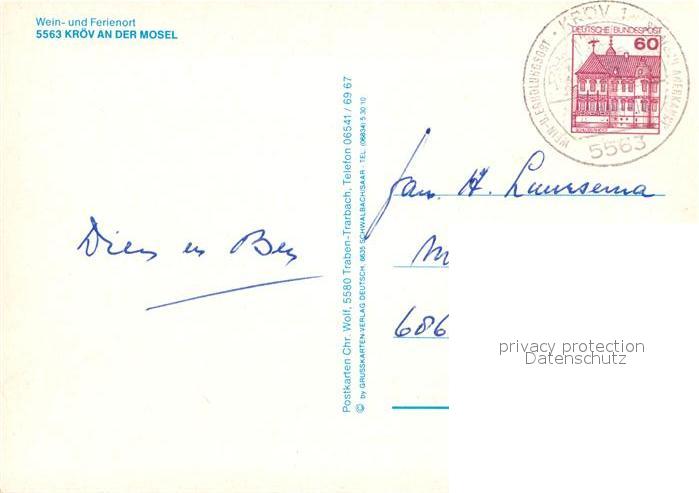 Wein- und Ferienort
5563 KRÖV AN DER MOSEL
KRÖV 1
5563
DEUTSCHE BUNDESPOST
60
Fam. H. Luursema
M
686
Dien en Ben
Postkarten Chr. Wolf, 5580 Traben-Trarbach, Telefon 06541 / 69 67
© by GRUSSKARTEN-VERLAG DEUTSCH, 6635 SCHWALBACH/SAAR · TEL. (06834) 5 30 10
privacy protection
Datenschutz